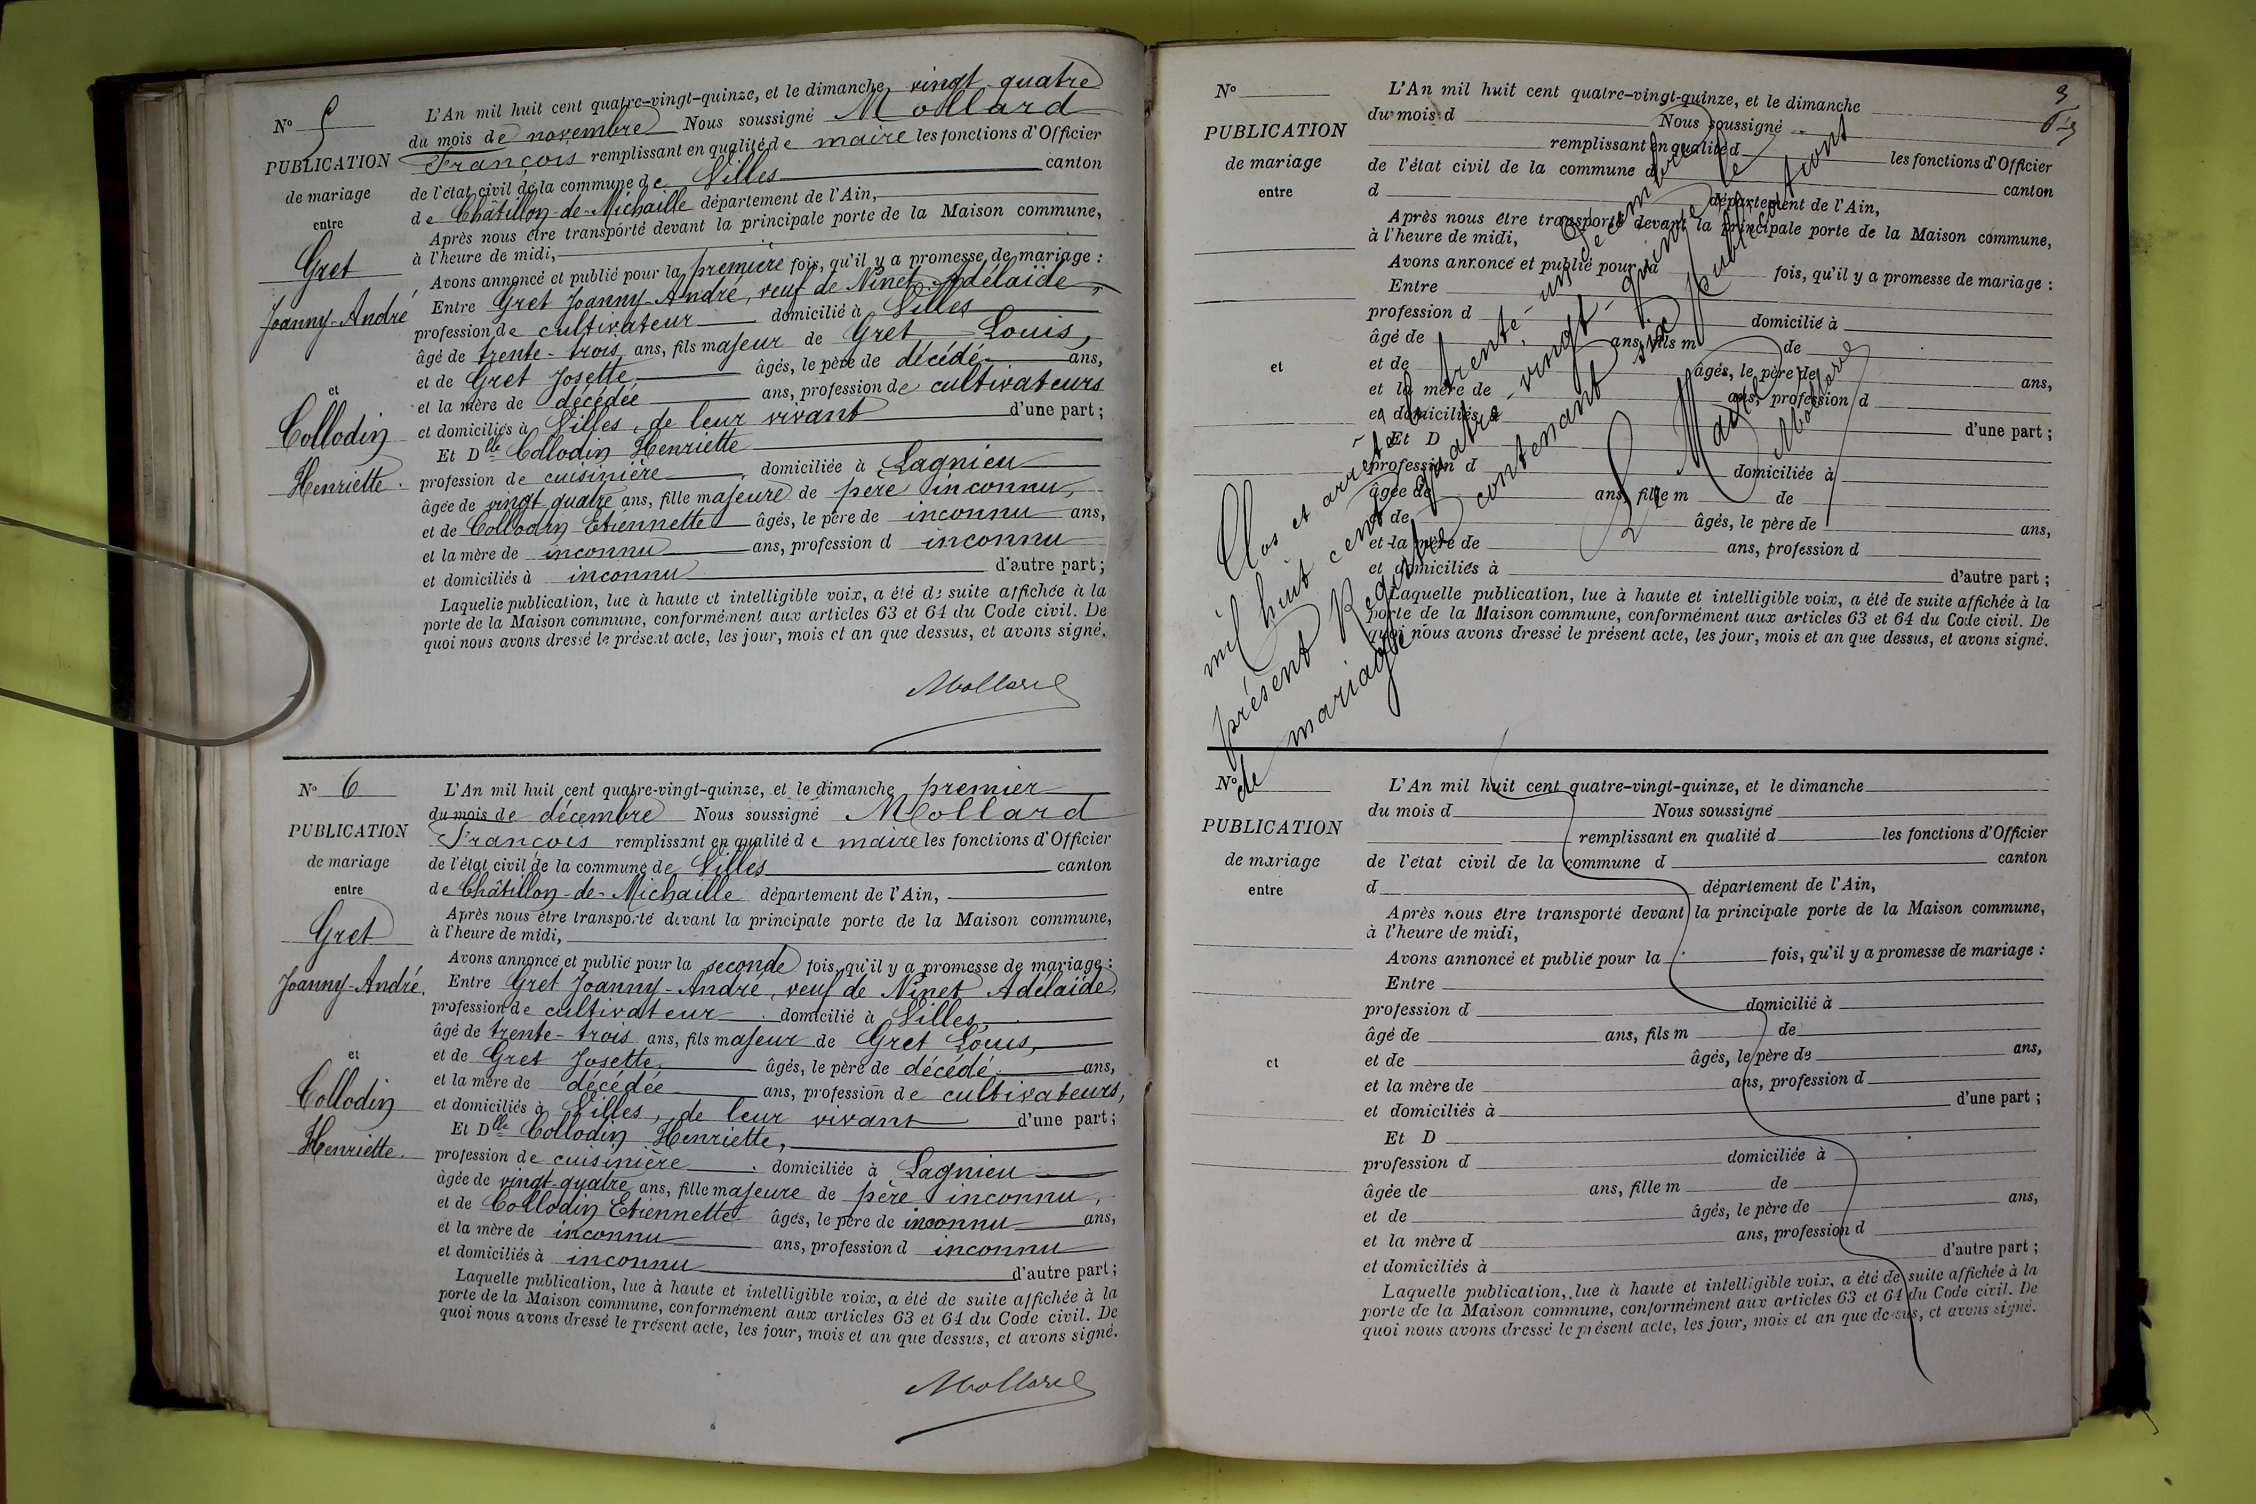 N° 5
PUBLICATION
de mariage
entre
Gret
Joanny-André
et
Collodin
Henriette.
L'An mil huit cent quatre-vingt-quinze, et le dimanche vingt-quatre
du mois de novembre Nous soussigné Mollard
François remplissant en qualité de maire les fonctions d'Officier
de l'état civil de la commune de Villes canton
de Châtillon-de-Michaille département de l'Ain,
Après nous être transporté devant la principale porte de la Maison commune,
à l'heure de midi,
Avons annoncé et publié pour la première fois, qu'il y a promesse de mariage :
Entre Gret Joanny-André, veuf de Ninet Adélaïde,
profession de cultivateur domicilié à Villes
âgé de trente-trois ans, fils majeur de Gret Louis,
et de Gret Josette, âgés, le père de décédé ans,
et la mère de décédée ans, profession de cultivateurs
et domiciliés à Villes, de leur vivant d'une part ;
Et Dlle Collodin Henriette
profession de cuisinière, domiciliée à Lagnieu
âgée de vingt quatre ans, fille majeure de père inconnu,
et de Collodin Etiennette âgés, le père de inconnu ans,
et la mère de inconnu ans, profession d inconnu
et domiciliés à inconnu d'autre part ;
Laquelle publication, lue à haute et intelligible voix, a été de suite affichée à la
porte de la Maison commune, conformément aux articles 63 et 64 du Code civil. De
quoi nous avons dressé le présent acte, les jour, mois et an que dessus, et avons signé.
Mollard
N° 6
PUBLICATION
de mariage
entre
Gret
Joanny-André.
et
Collodin
Henriette.
L'An mil huit cent quatre-vingt-quinze, et le dimanche premier
du mois de décembre Nous soussigné Mollard
François remplissant en qualité de maire les fonctions d'Officier
de l'état civil de la commune de Villes canton
de Châtillon-de-Michaille département de l'Ain,
Après nous être transporté devant la principale porte de la Maison commune,
à l'heure de midi,
Avons annoncé et publié pour la seconde fois, qu'il y a promesse de mariage :
Entre Gret Joanny-André, veuf de Ninet Adélaïde,
profession de cultivateur domicilié à Villes,
âgé de trente-trois ans, fils majeur de Gret Louis,
et de Gret Josette, âgés, le père de décédé ans,
et la mère de décédée ans, profession de cultivateurs,
et domiciliés à Villes, de leur vivant d'une part ;
Et Dlle Collodin Henriette,
profession de cuisinière domiciliée à Lagnieu
âgée de vingt-quatre ans, fille majeure de père inconnu,
et de Collodin Etiennette âgés, le père de inconnu ans,
et la mère de inconnu ans, profession d inconnu
et domiciliés à inconnu d'autre part ;
Laquelle publication, lue à haute et intelligible voix, a été de suite affichée à la
porte de la Maison commune, conformément aux articles 63 et 64 du Code civil. De
quoi nous avons dressé le présent acte, les jour, mois et an que dessus, et avons signé.
Mollard
3
N°
PUBLICATION
de mariage
entre
et
L'An mil huit cent quatre-vingt-quinze, et le dimanche
du mois d Nous soussigné
remplissant en qualité d les fonctions d'Officier
de l'état civil de la commune d canton
d département de l'Ain,
Après nous être transporté devant la principale porte de la Maison commune,
à l'heure de midi,
Avons annoncé et publié pour la fois, qu'il y a promesse de mariage :
Entre
profession d domicilié à
âgé de ans, fils m de
et de âgés, le père de ans,
et la mère de ans, profession d
et domiciliés à d'une part ;
Et D
profession d domiciliée à
âgée de ans, fille m de
et de âgés, le père de ans,
et la mère de ans, profession d
et domiciliés à d'autre part ;
Laquelle publication, lue à haute et intelligible voix, a été de suite affichée à la
porte de la Maison commune, conformément aux articles 63 et 64 du Code civil. De
quoi nous avons dressé le présent acte, les jour, mois et an que dessus, et avons signé.
Clos et arrêté le trente-un décembre
mil huit cent quatre-vingt-quinze le
présent Registre contenant six publications
de mariage
Le Maire
Mollard
N°
PUBLICATION
de mariage
entre
et
L'An mil huit cent quatre-vingt-quinze, et le dimanche
du mois d Nous soussigné
remplissant en qualité d les fonctions d'Officier
de l'état civil de la commune d canton
d département de l'Ain,
Après nous être transporté devant la principale porte de la Maison commune,
à l'heure de midi,
Avons annoncé et publié pour la fois, qu'il y a promesse de mariage :
Entre
profession d domicilié à
âgé de ans, fils m de
et de âgés, le père de ans,
et la mère de ans, profession d
et domiciliés à d'une part ;
Et D
profession d domiciliée à
âgée de ans, fille m de
et de âgés, le père de ans,
et la mère d ans, profession d
et domiciliés à d'autre part ;
Laquelle publication, lue à haute et intelligible voix, a été de suite affichée à la
porte de la Maison commune, conformément aux articles 63 et 64 du Code civil. De
quoi nous avons dressé le présent acte, les jour, mois et an que dessus, et avons signé.